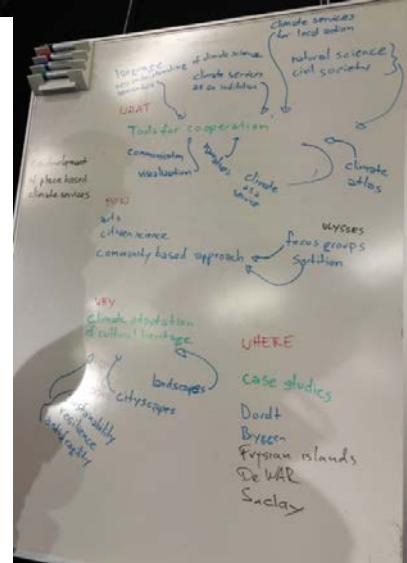 climate services
for local action
natural science
civil society
language
of climate science
climate services
as an institution
WHAT
Tools for cooperation
communication
visualization
climate
as a
service
climate
atlas
Co-development
of place based
climate services
HOW
arts
citizen science
community based approach
ULYSSES
focus groups
Sortition
WHY
climate adaptation
of cultural heritage
landscapes
cityscapes
sustainability
resilience
WHERE
case studies
Dordt
Bryggen
Frysian islands
De WAR
Saclay